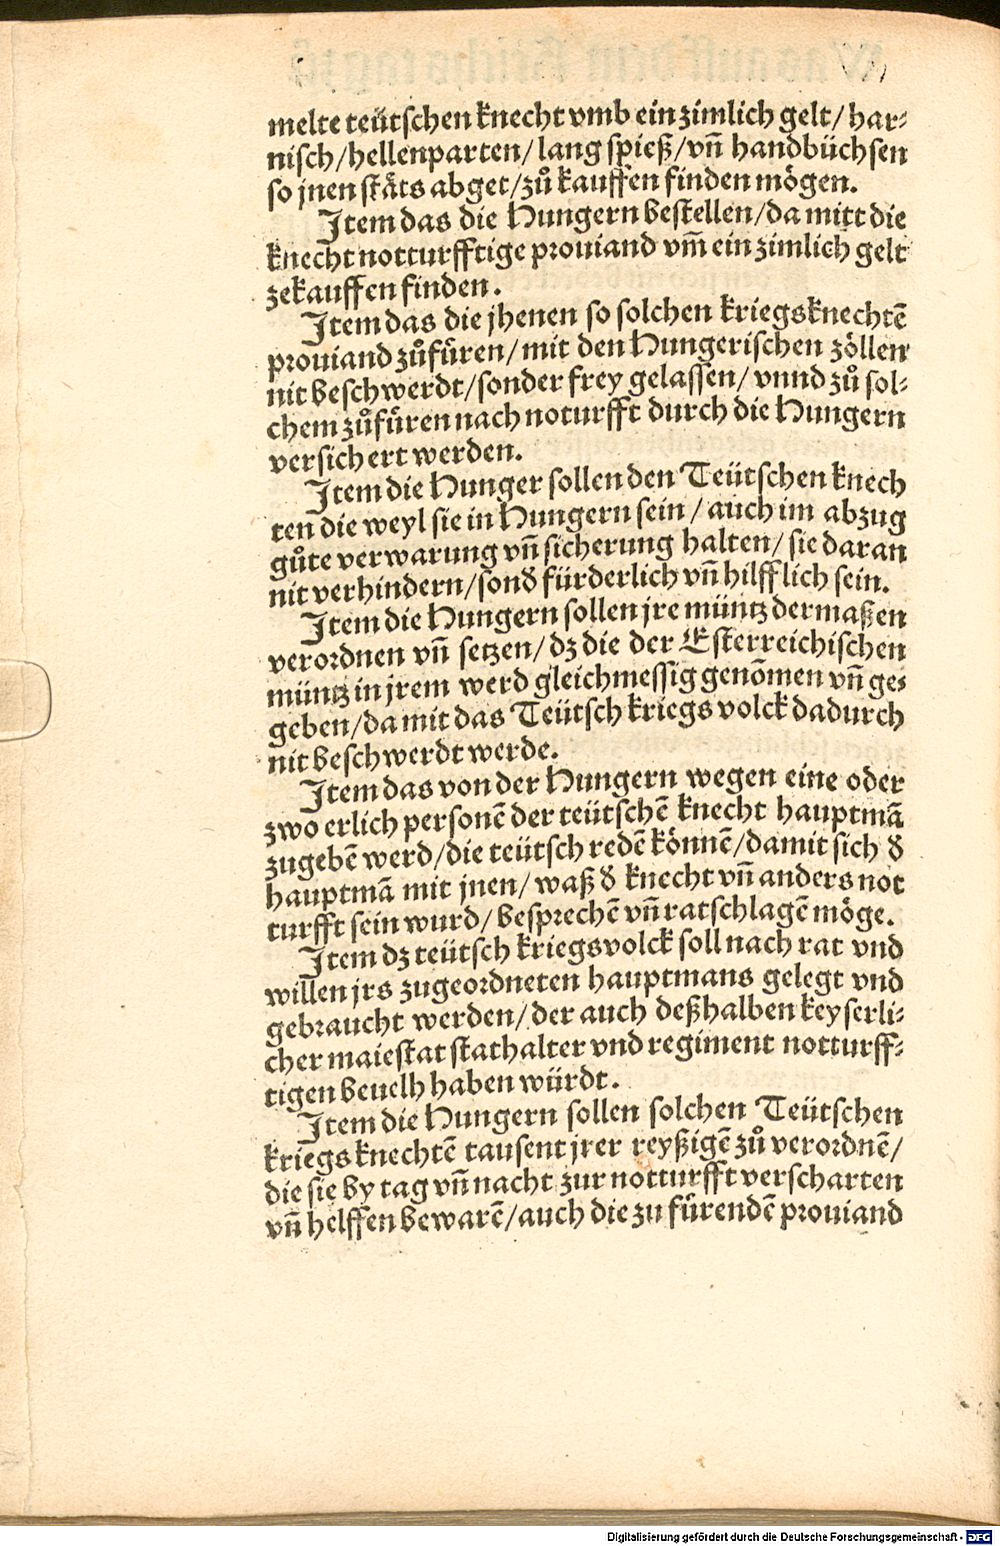 melte teütschen knecht vmb ein zimlich gelt/ har⸗
nisch/hellenparten/ lang spieß/vn̄ handbüchsen
so jnen stäts abget/zů kauffen finden mögen.
Item das die Hungern bestellen/da mitt die
knecht notturfftige prouiand vm̄ ein zimlich gelt
zekauffen finden.
Item das die jhenen so solchen kriegsknechtē
prouiand zůfüren/ mit den Hungerischen zöllen
nit beschwerdt/sonder frey gelassen/ vnnd zů sol⸗
chem zůfüren nach noturfft durch die Hungern
versichert werden.
Item die Hunger sollen den Teütschen knech
ten die weyl sie in Hungern sein / auch im abzug
gůte verwarung vn̄ sicherung halten/ sie daran
nit verhindern/sond̄ fürderlich vn̄ hilfflich sein.
Item die Hungern sollen jre müntz dermaßen
verordnen vn̄ setzen/ dz die der Esterreichischen
müntz in jrem werd gleichmessig genōmen vn̄ ge⸗
geben/da mit das Teütsch kriegs volck dadurch
nit beschwerdt werde.
Item das von der Hungern wegen eine oder
zwo erlich personē der teütschē knecht hauptmā
zugebē werd/die teütsch redē könnē/damit sich d̄
hauptmā mit jnen/ waß d̄ knecht vn̄ anders not
turfft sein wurd/ besprechē vn̄ ratschlagē möge.
Item dz teütsch kriegsvolck soll nach rat vnd
willen jrs zugeordneten hauptmans gelegt vnd
gebraucht werden/ der auch deßhalben keyserli⸗
cher maiestat stathalter vnd regiment notturff⸗
tigen beuelh haben würdt.
Item die Hungern sollen solchen Teütschen
kriegs knechtē tausent jrer reyßigē zů verordnē/
die sie by tag vn̄ nacht zur notturfft verscharten
vn̄ helffen bewarē/auch die zu fürendē prouiand
Digitalisierung gefördert durch die Deutsche Forschungsgemeinschaft - DFG